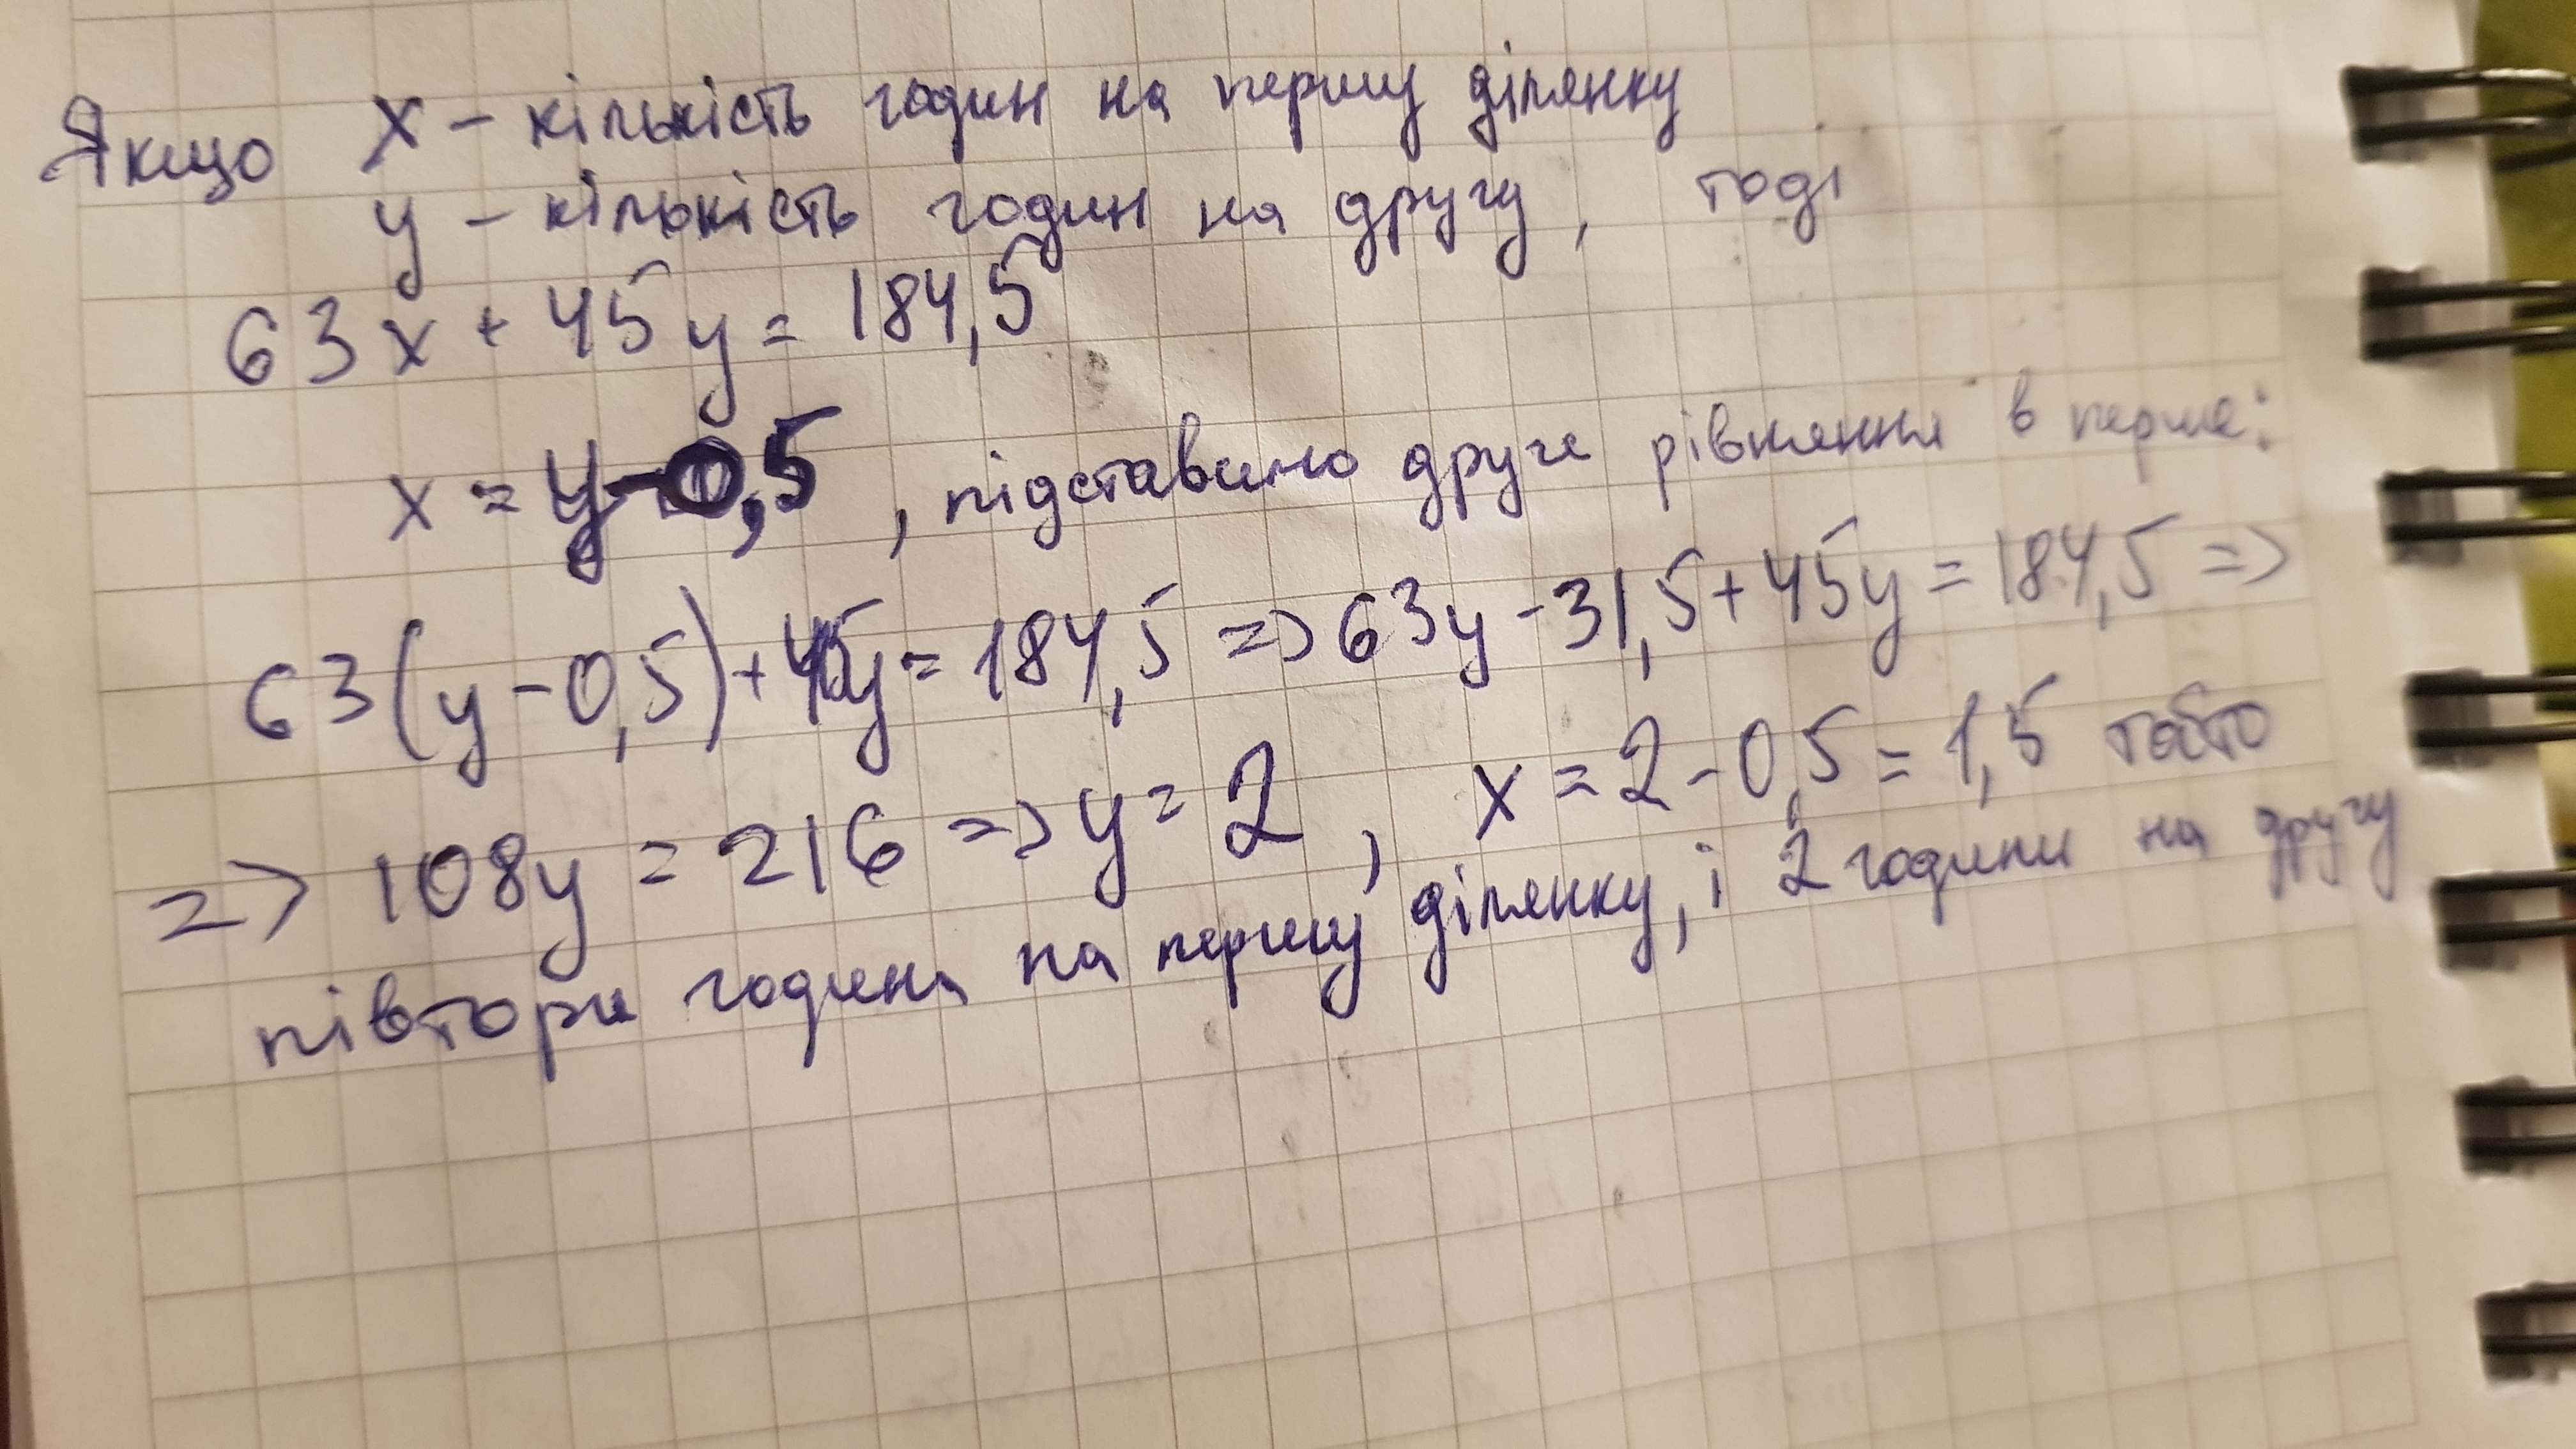 Якщо x – кількість годин на першу ділянку
y – кількість годин на другу, тоді
63x + 45y = 184,5
x = y-0,5 , підставимо друге рівняння в перше:
63(y-0,5)+45y = 184,5 => 63y - 31,5 + 45y = 184,5 =>
=> 108y = 216 => y = 2 , x = 2 - 0,5 = 1,5 тобто
півтори години на першу ділянку, і 2 години на другу